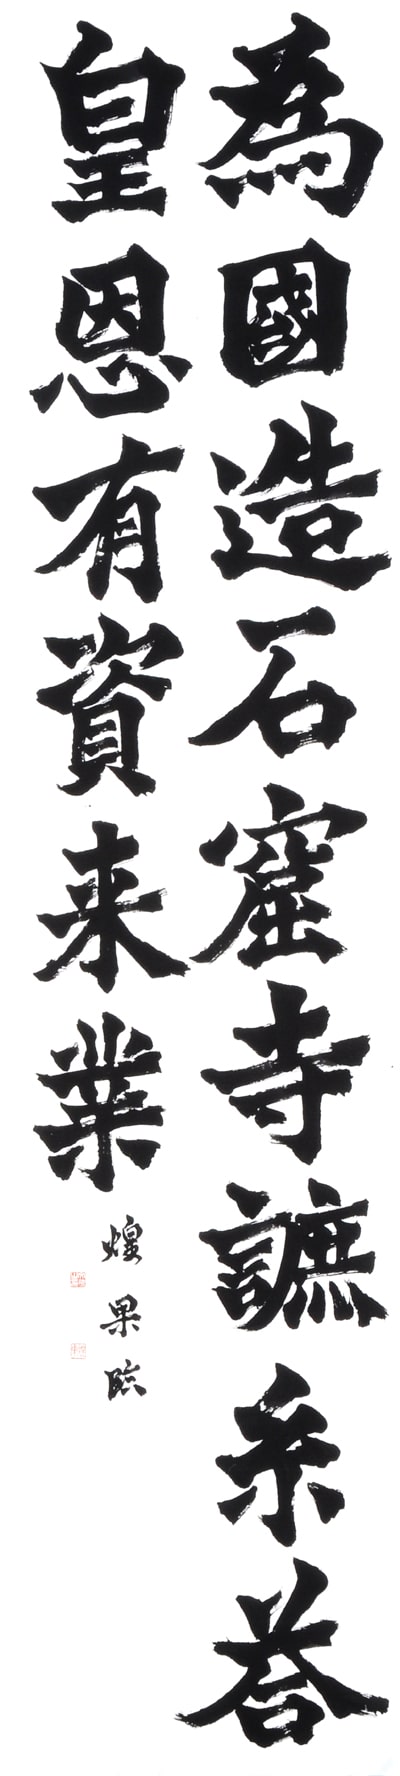 為國造石窟寺謶糸荅
皇恩有資来業
煌果臨